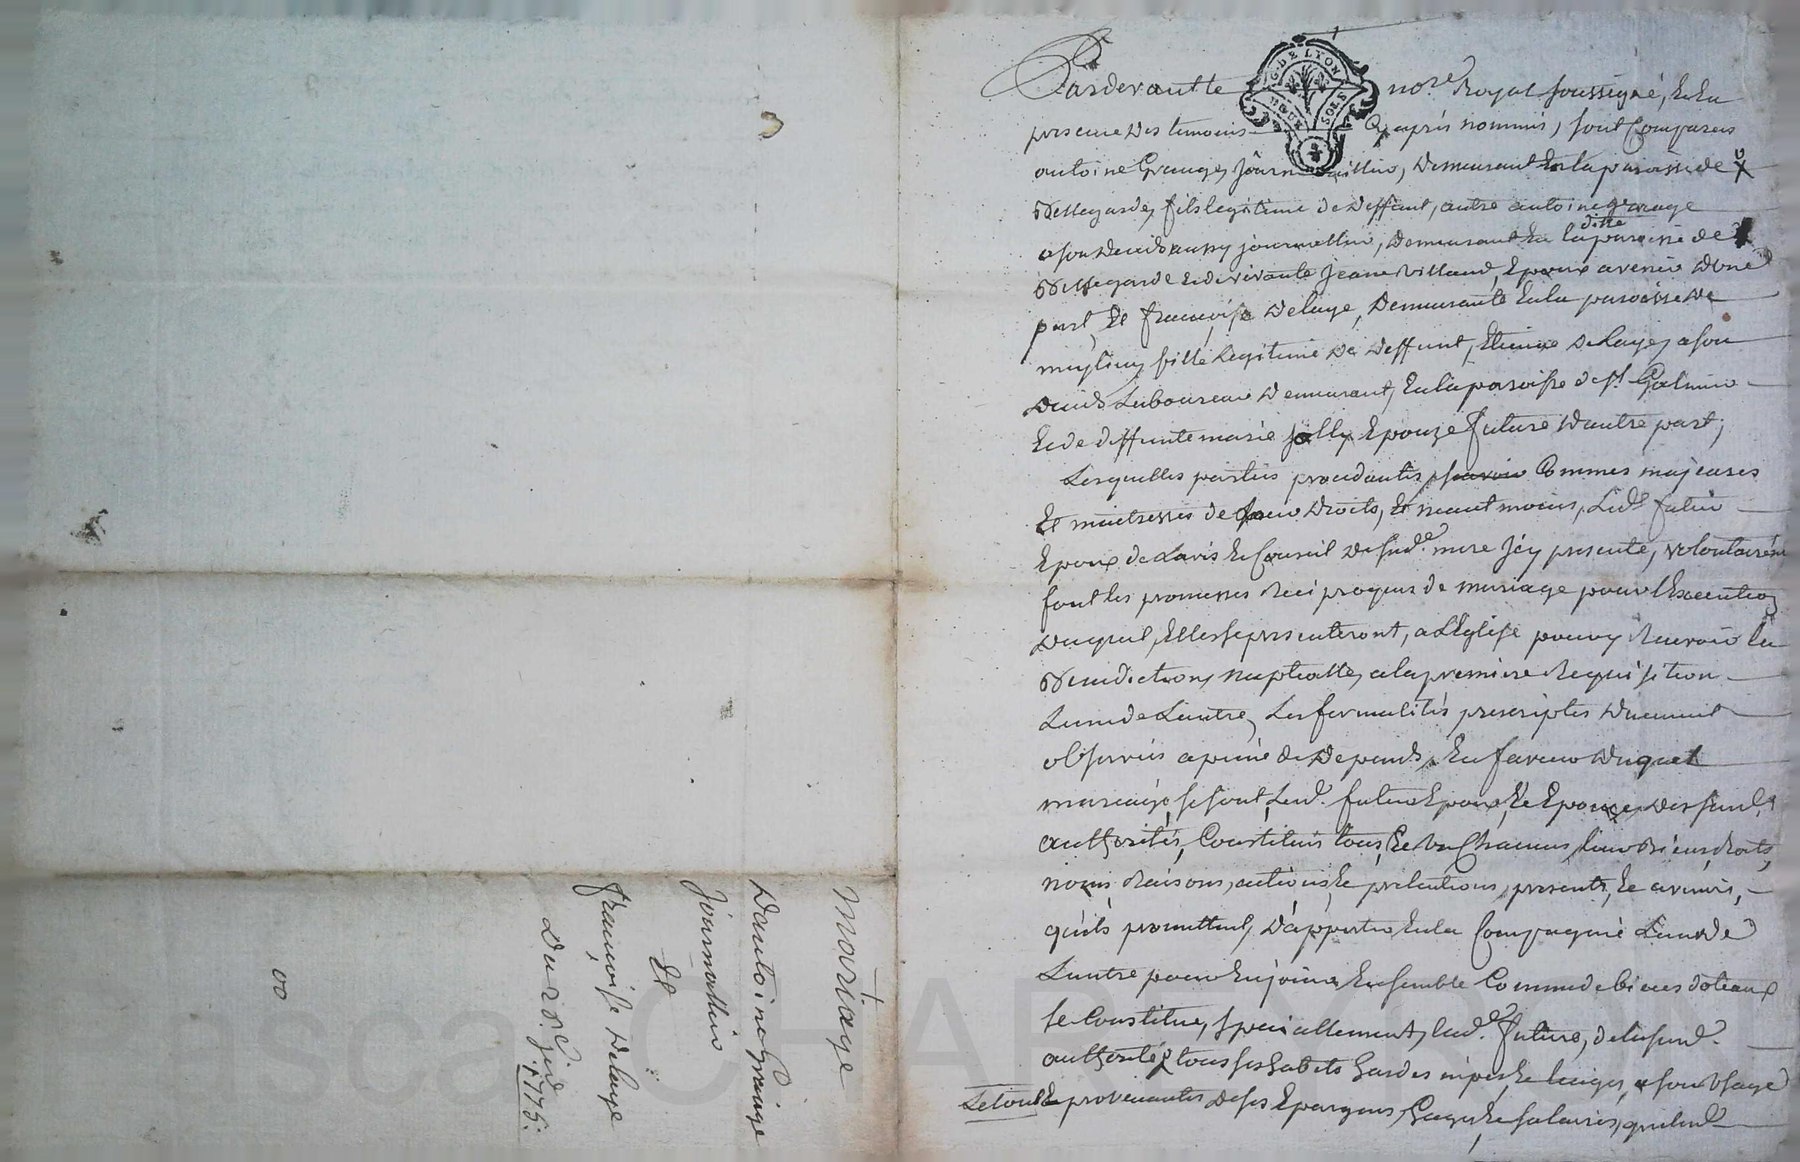 Pardevant le nore Royal soussigné, & en
presence des temoins Cy après nommés, sont Comparus
antoine Grange, Journallier, demeurant En la paroisse de
Bellegarde, fils legitime de deffunt, autre antoine grange
a son deceds aussy journallier, demeurant En laditte paroisse de
Bellegarde & de vivante Jeanne Villaud, Epoux avenir d'une
part, Et françoise Delaye, Demeurante En la paroisse de
fille Legitime de deffunt, Etienne DeLaye, a son
deceds Laboureur demeurant, En la paroisse de st Galmier
& de deffunte marie jolly Epouze future d'autre part;
Lesquelles parties procedantes, sçavoir Commes majeures
Et maitresses de Leurs droits, Et neantmoins, Ledt futur
Epoux de Lavis & Conseil de sade mere Jcy presente, volontairemt
font les promesses Reciproques de mariage pour l'Execution
duquel, Elles se presenteront, a L'Eglise pour y Recevoir la
Benediction nuptialle, a la premiere Requisition
L'un de L'autre, Les formalités prescriptes duement
observées a peine de depends, En faveur duquel
mariage, se sont, Lesd. futurs Epoux, & Epouze, de
authorités, Constitués tous & un Chacuns, leurs Biens, droits,
noms, Raisons, actions & pretentions, presents, & avenirs,
qu'ils promettent, d'apporter En la Compagnie L'un de
L'autre pour En jouir, Ensemble Comme de biens doteaux
se Constitue, speciallement, lade. future, de
authorité, tous ses habits hardes nipes & linges, a son Usage
Le tout provenantes de ses Epargnes, Gages & salaires, que led
mariage
D'antoine Grange
Journallier
Et
françoise Delaye
Du 28e Jer
1775.
00
G. DE LYON
DEUX SOLS
CHAR